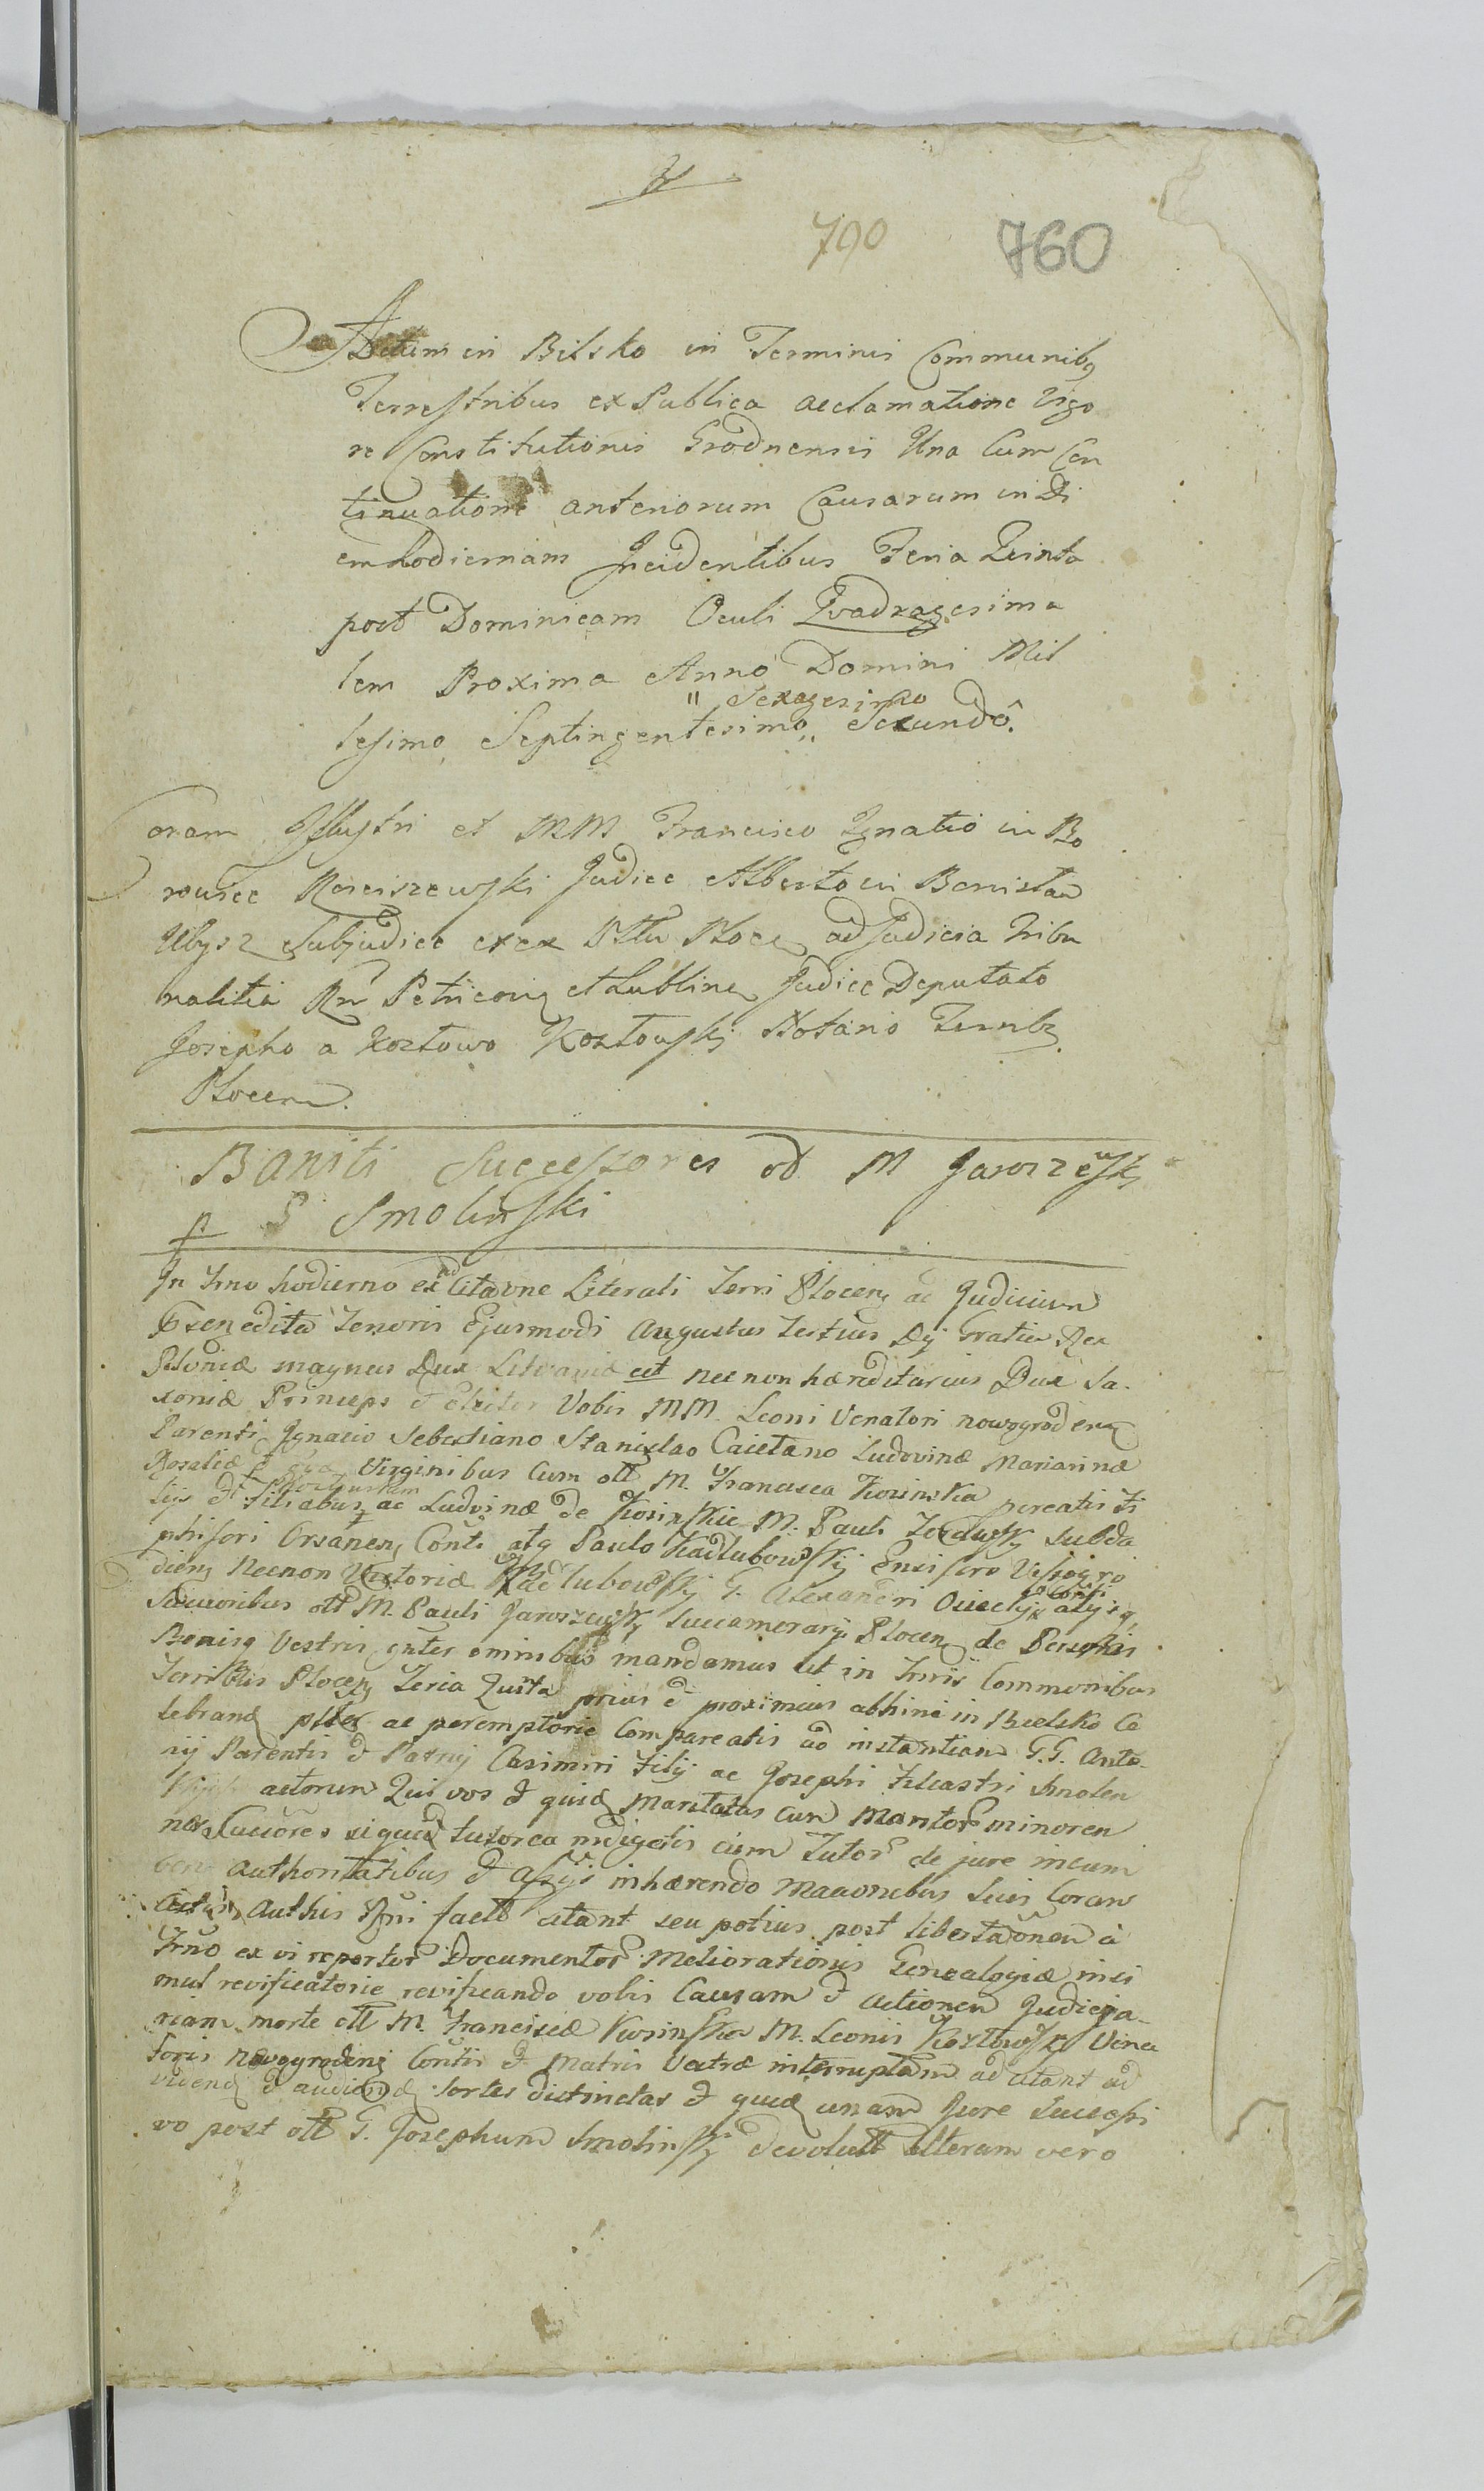 790 760
Actum in Bilsko in Terminis Communibq
Terrestribus ex Publica acclamatione Vigo
re Constitutionis Grodnensis Una Cum Con
tinuatione anteriorum Causarum in Di
em hodiernam Incidentibus Feria Quinta
post Dominicam Oculi Quadragesima
lem Proxima Anno Domini Mil
" Sexagesimo
lesimo Septingentesimo,, Secundô.
Coram Illustri et MM Francisco Ignatio in Bo
rowice Rosciszewski Judice Alberto in Bonislaw
Ubysz Subjudice exex Ploce ad Judicia Tribu
nalitia Rni Petricovi et Lubline Judice Deputato
Josepho a Kozłowo Kozłowski Notario
Plocen.
Baniti Successores od M Jaroszewski
p G Smolinski
In Trno hodierno ex ad Citaone Literali Terri Plocen ac Judicium
edita Tenoris Ejusmodi Augustus Tertius Dej Gratia Rex
Poloniæ magnus Dux Litvaniæ ect nec non hæreditarius Dux Sa-
xoniæ Princeps & Elector Vobis MM. Leoni Venatori nowogroden
Parenti Ignacio Sebestiano Stanislao Caietano Ludovinæ Mariannæ
Rosaliæ Virginibus Cum olt M. Francisca Kosinska pcreatis Fi
lijs & Filiabus ac Ludvinæ de Kosinskie M. Pauli subda
phifori Orsanen Conti atq Paulo Kadlubowskij Ensifero Vissogro
dien Necnon Victoriæ Kadlubowskij G. Alexandri alijsq
Sucessoribus olt M. Pauli Jaroszewskj Succamerarij Plocen de Personis
Bonisq Vestris gnter omnibus mandamus ut in Trnis Communibus
Terribus Plocen Feria Quinta prius & proximius abhinc in Bielsko Ce
lebrand ac peremptorie Compareatis ad instantiam G.G. Anto-
nij Parentis & Patruj Casimiri Filij ac Josephi Filiastri Smolen
actorum Qui vos & quid Maritatas cum Maritor minoren
nes Successores siquid tutorea indigetis cum Tutor de jure incum
authoritatibus & inhærendo suis Coram
Authis facto citant seu potius post libertaonem à
Trno ex vi repertor Documentor Meliorationis Genealogiæ insi
mul revificatorie revificando vobis Causam & actionem Judicia-
riam morte olt M. Franciscæ Kosinska M. Leonis Kozlowski Vena
toris Nowogroden Contis & Matris Vestræ interruptam adcitant ad
videnq & audiendq sortes distinctas & quid unam Jure Successi
vo post olt G. Josephum Smolinskj devolutt alteram vero